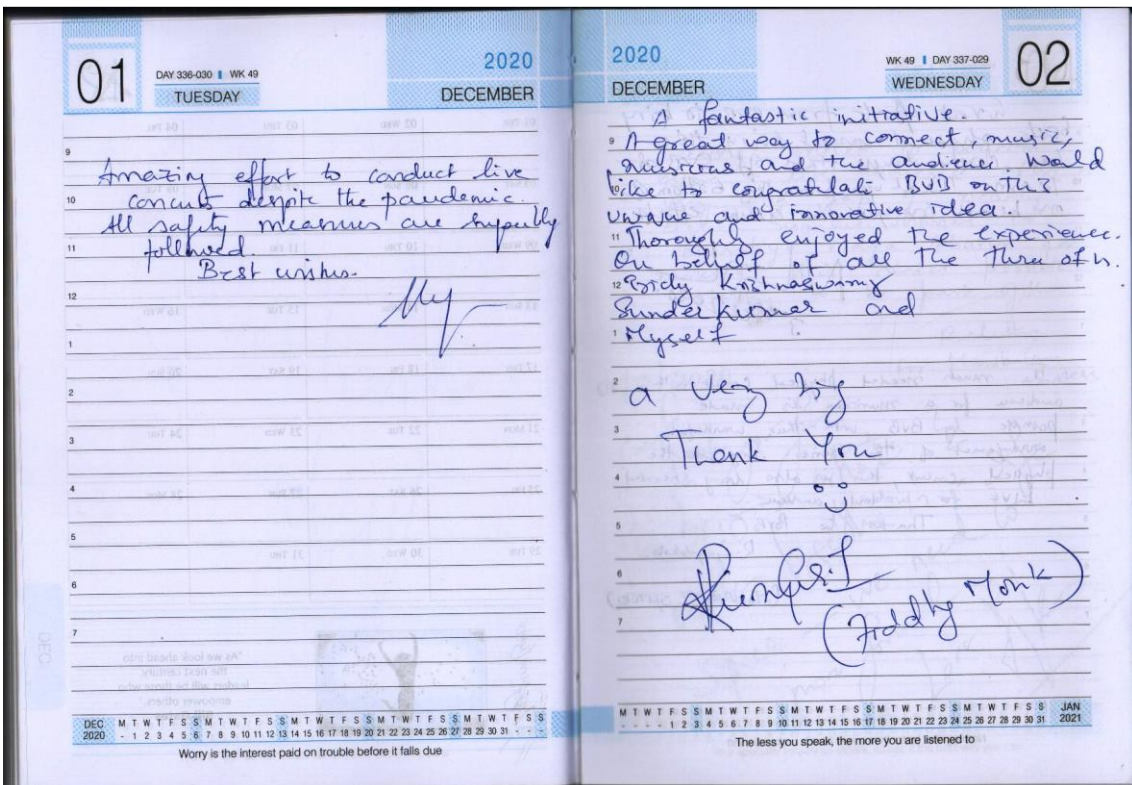 01
DAY 336-030 WK 49
TUESDAY
2020
DECEMBER
9
Amazing effort to conduct live
10
concerts despite the pandemic.
All safety measures are superbly
11
followed.
Best wishes.
12
1
2
3
4
5
6
7
DEC
DEC 2020
M T W T F S S M T W T F S S M T W T F S S M T W T F S S M T W T F S S
- 1 2 3 4 5 6 7 8 9 10 11 12 13 14 15 16 17 18 19 20 21 22 23 24 25 26 27 28 29 30 31 - - -
Worry is the interest paid on trouble before it falls due
2020
DECEMBER
WK 49 DAY 337-029
WEDNESDAY
02
A fantastic initiative.
9 A great way to connect, music,
musicians and the audience. Would
10 like to congratulate BVB on this
unique and innovative idea.
11 Thoroughly enjoyed the experience.
On behalf of all the three of us.
12 Krishnaswamy
Sunderkumar and
1 Myself
2 a very big
3 Thank You
4
5
6
(Fiddly Monk)
7
M T W T F S S M T W T F S S M T W T F S S M T W T F S S M T W T F S S
- - - - 1 2 3 4 5 6 7 8 9 10 11 12 13 14 15 16 17 18 19 20 21 22 23 24 25 26 27 28 29 30 31
JAN 2021
The less you speak, the more you are listened to